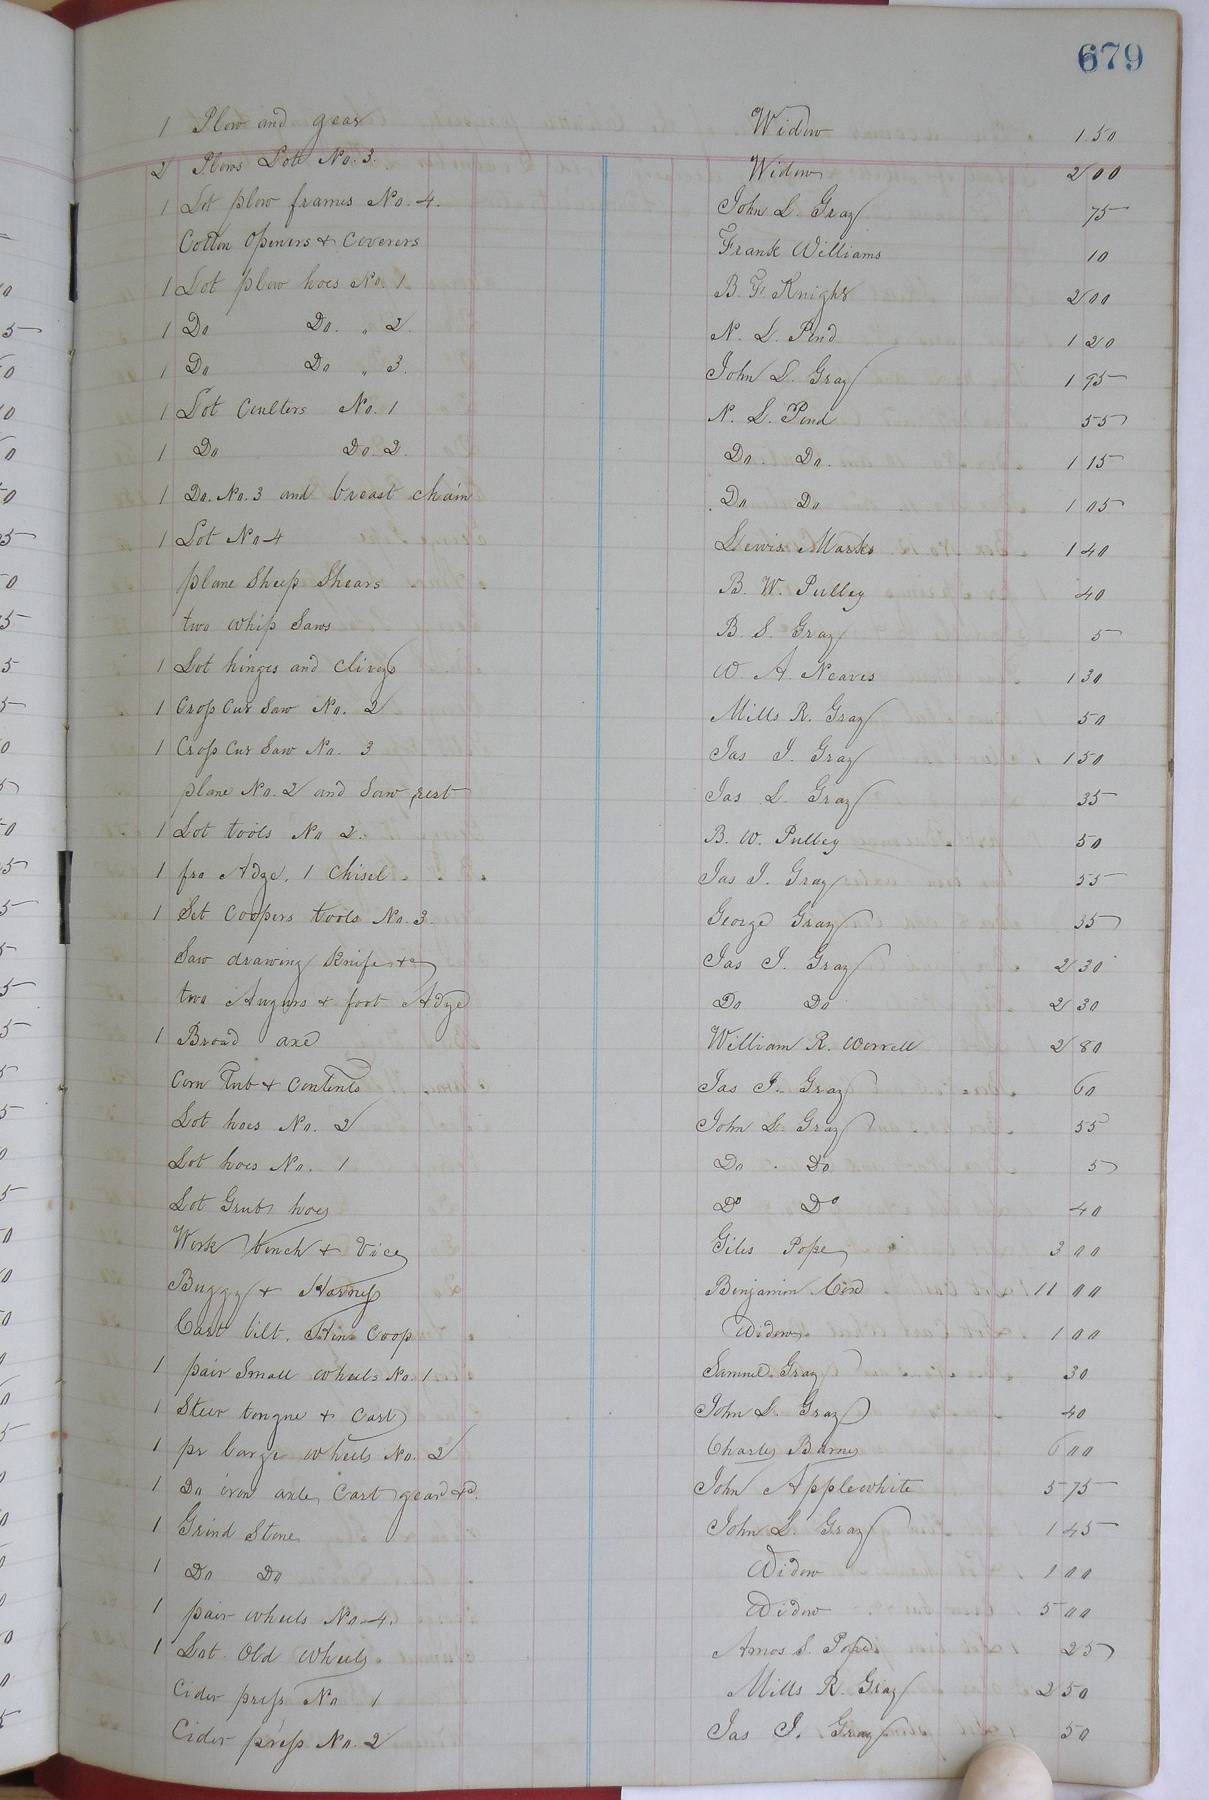 679
1 Plow and gear Widow 1 50
2 Plows Lot No. 3. Widow 2 00
1 Lot plow frames No. 4. John L. Gray 75
Cotton Openers & Coverers Frank Williams 10
1 Lot plow hoes No. 1 B. F. Knight 2 00
1 Do Do. " 2. N. L. Pond 1 20
1 Do Do " 3. John L. Gray 1 95
1 Lot Coulters No. 1 N. L. Pond 55
1 Do Do. 2. Do. Do. 1 15
1 Do. No. 3 and breast chain Do Do 1 05
1 Lot No 4 Lewis Marks 1 40
plane Sheep Shears B. W. Pulley 40
two whip Saws B. S. Gray 5
1 Lot hinges and W. A. Neaves 1 30
1 Cross Cut Saw No. 2 Mills R. Gray 50
1 Cross Cut Saw No. 3 Jas J. Gray 1 50
plane No. 2 and Saw rest Jas L. Gray 35
1 Lot tools No 2. B. W. Pulley 50
1 fro Adze. 1 Chisel Jas J. Gray 55
1 Set Coopers tools No. 3. George Gray 35
Saw drawing Knife &c Jas J. Gray 2 30
two Augurs & foot Adze Do Do 2 30
1 Broad axe William R. Worrell 2 80
Corn Tub & Contents Jas J. Gray 60
Lot hoes No. 2 John L. Gray 55
Lot hoes No. 1 Do. Do 5
Lot Grub hoes Do Do 40
Work bench & Vice Giles Pope 3 00
Buggy & Harness Benjamin 11 00
Cart bilt. Hen Coop Widow 1 00
1 pair Small wheels No. 1 Samuel Gray 30
1 Steer tongue & Cart John L. Gray 40
1 pr large wheels No. 2 Charles Barnes 6 00
1 Do iron axle, Cart gear &c. John Applewhite 5 75
1 Grind Stone John L. Gray 1 45
1 Do Do Widow 1 00
1 pair wheels No. 4. Widow 5 00
1 Lot Old wheels Amos S. Pope 25
Cider press No 1 Mills R. Gray 2 50
Cider press No. 2 Jas J. Gray 50